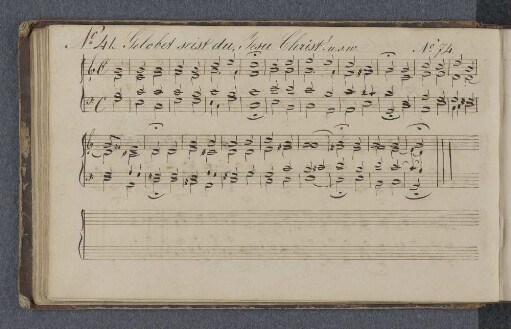 No. 41. Gelobet seist du, Jesu Christ u.s.w. No. 74